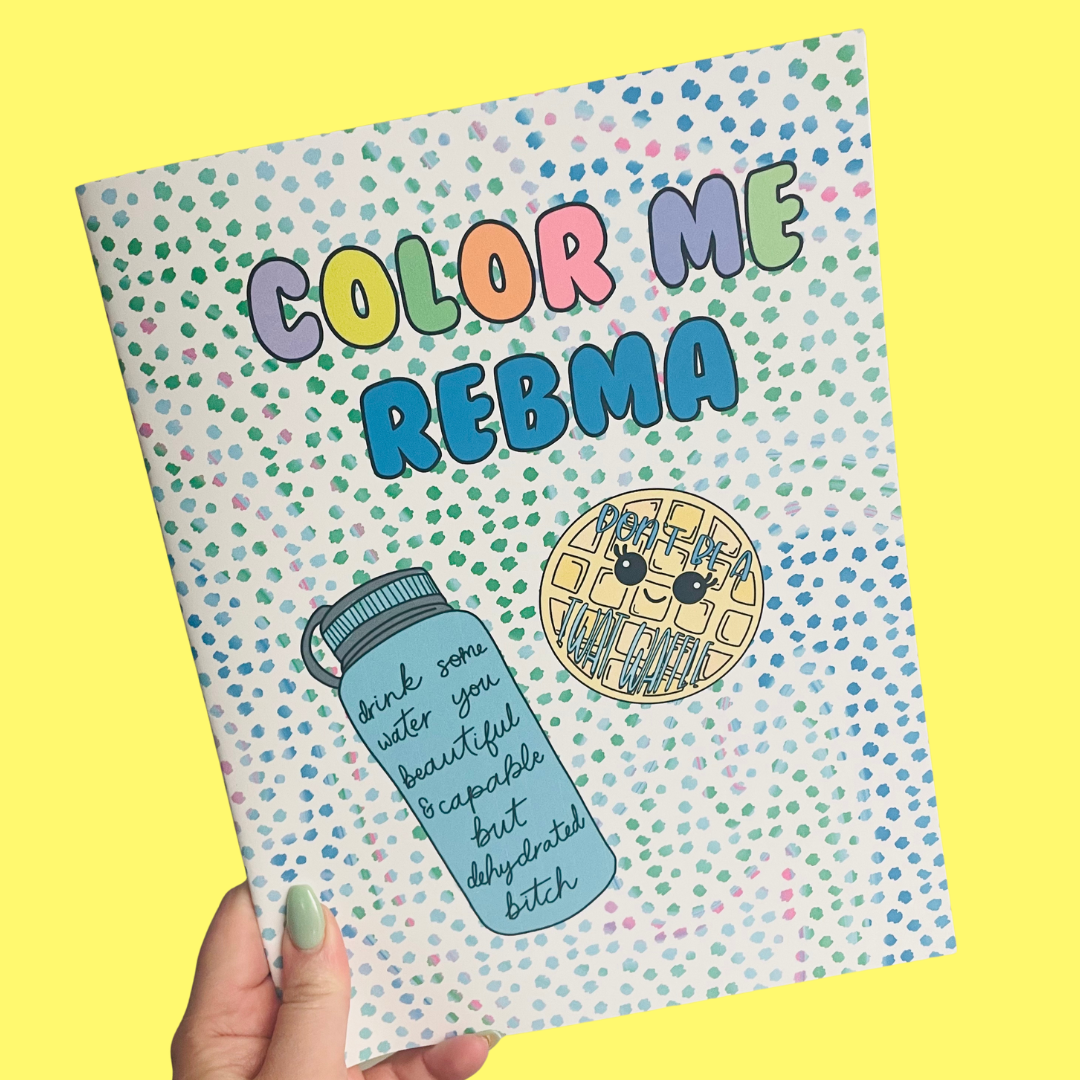 COLOR ME
REBMA
DON'T BE A
TWAT WAFFLE
drink some
water you
beautiful
& capable
but
dehydrated
bitch